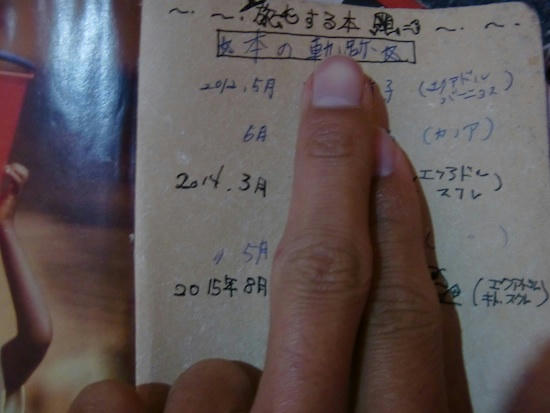 ~・~・旅をする本 願い ~・~・
本の動跡
2012.5月 子 (エクアドル
バーニョス)
6月 (カノア)
2014.3月 エクアドル
スクレ)
〃 5月 ( )
2015年8月 (エクアドル
キト.スクレ)